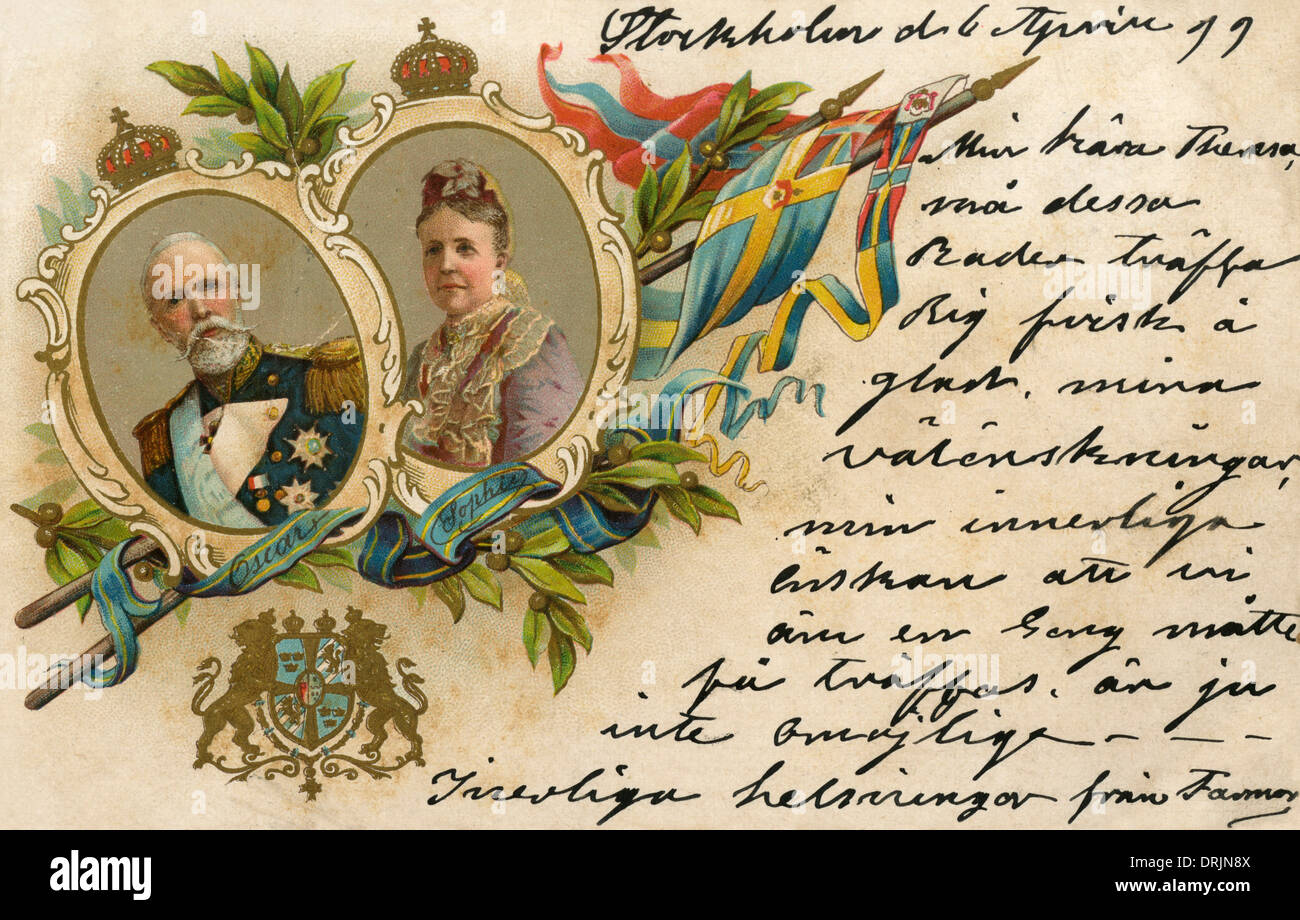 Stockholm d 6 Apriu 99
Min kära Theresa,
må dessa
Rader träffa
Dig frisk å
glad, mina
välönskningar,
min innerliga
önskan att vi
än en Gang måtte
få träffas, är ju
inte omöjliga - - -
Inerliga helsningar från Farmor
Oscar
Sophie
alamy
Image ID: DRJN8X
www.alamy.com